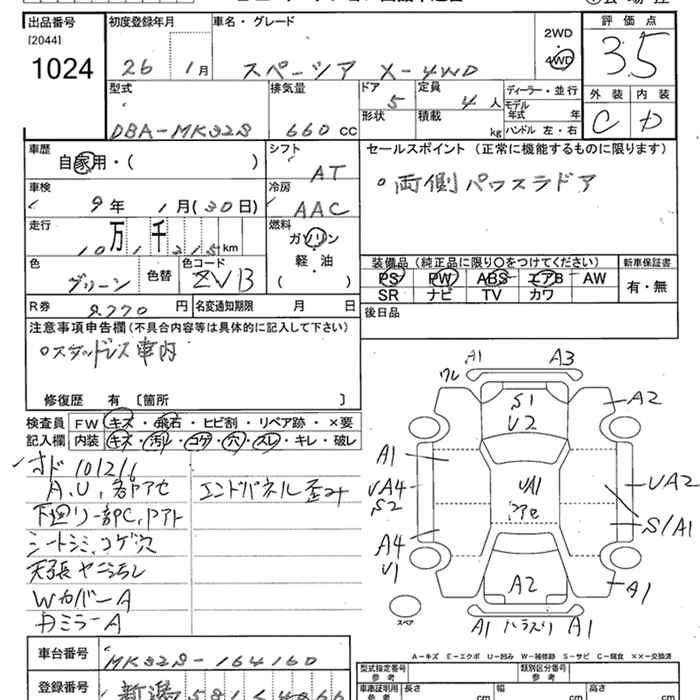 出品番号
[2044]
1024
初度登録年月
26 1月
車名・グレード
スペーシア X-4WD
2WD
4WD
評価点
3.5
型式
DBA-MK32S
排気量
660 CC
ドア
5
形状
定員
4 人
積載
kg
ディーラー・並行
モデル
年式 年
ハンドル 左・右
外装 内装
C D
車歴
自家用・( )
シフト
AT
セールスポイント (正常に機能するものに限ります)
○両側パワスラドア
車検
9年 1月(30日)
冷房
AAC
走行
10万1千215km
燃料
ガソリン
軽・油
( )
色
グリーン
色替
色コード
ZVB
装備品 (純正品に限り○をつけてください)
PS PW ABS エアB AW
SR ナビ TV カワ
新車保証書
有・無
R券 8770円
名変通知期限 月 日
後日品
注意事項申告欄(不具合内容等は具体的に記入して下さい)
○スタッドレス車内
修復歴 有 〔箇所 〕
検査員
記入欄
FW キズ・飛石・ヒビ割・リペア跡・×要
内装 キズ・汚レ・コゲ・穴・スレ・キレ・破レ
A.U.各アセ
エンドパネル歪み
下廻り一部PC.
シートシミ.コゲ穴
天張ヤニ汚レ
WカバーA
ミラーA
A1 A3
ワレ
S1
U2
A2
A1
UA4
S2
UA1
UA2
S/A1
A4
U1
A2
A1
スペア
A1 A1
A-キズ E-エクボ U-凹み W-補修跡 S-サビ C-腐食 XX-交換済
車台番号
MK32S-164160
登録番号
新潟 581
型式指定番号
参考
類別区分番号
参考
車庫証明用
参考
長さ
cm
幅
cm
高さ
cm